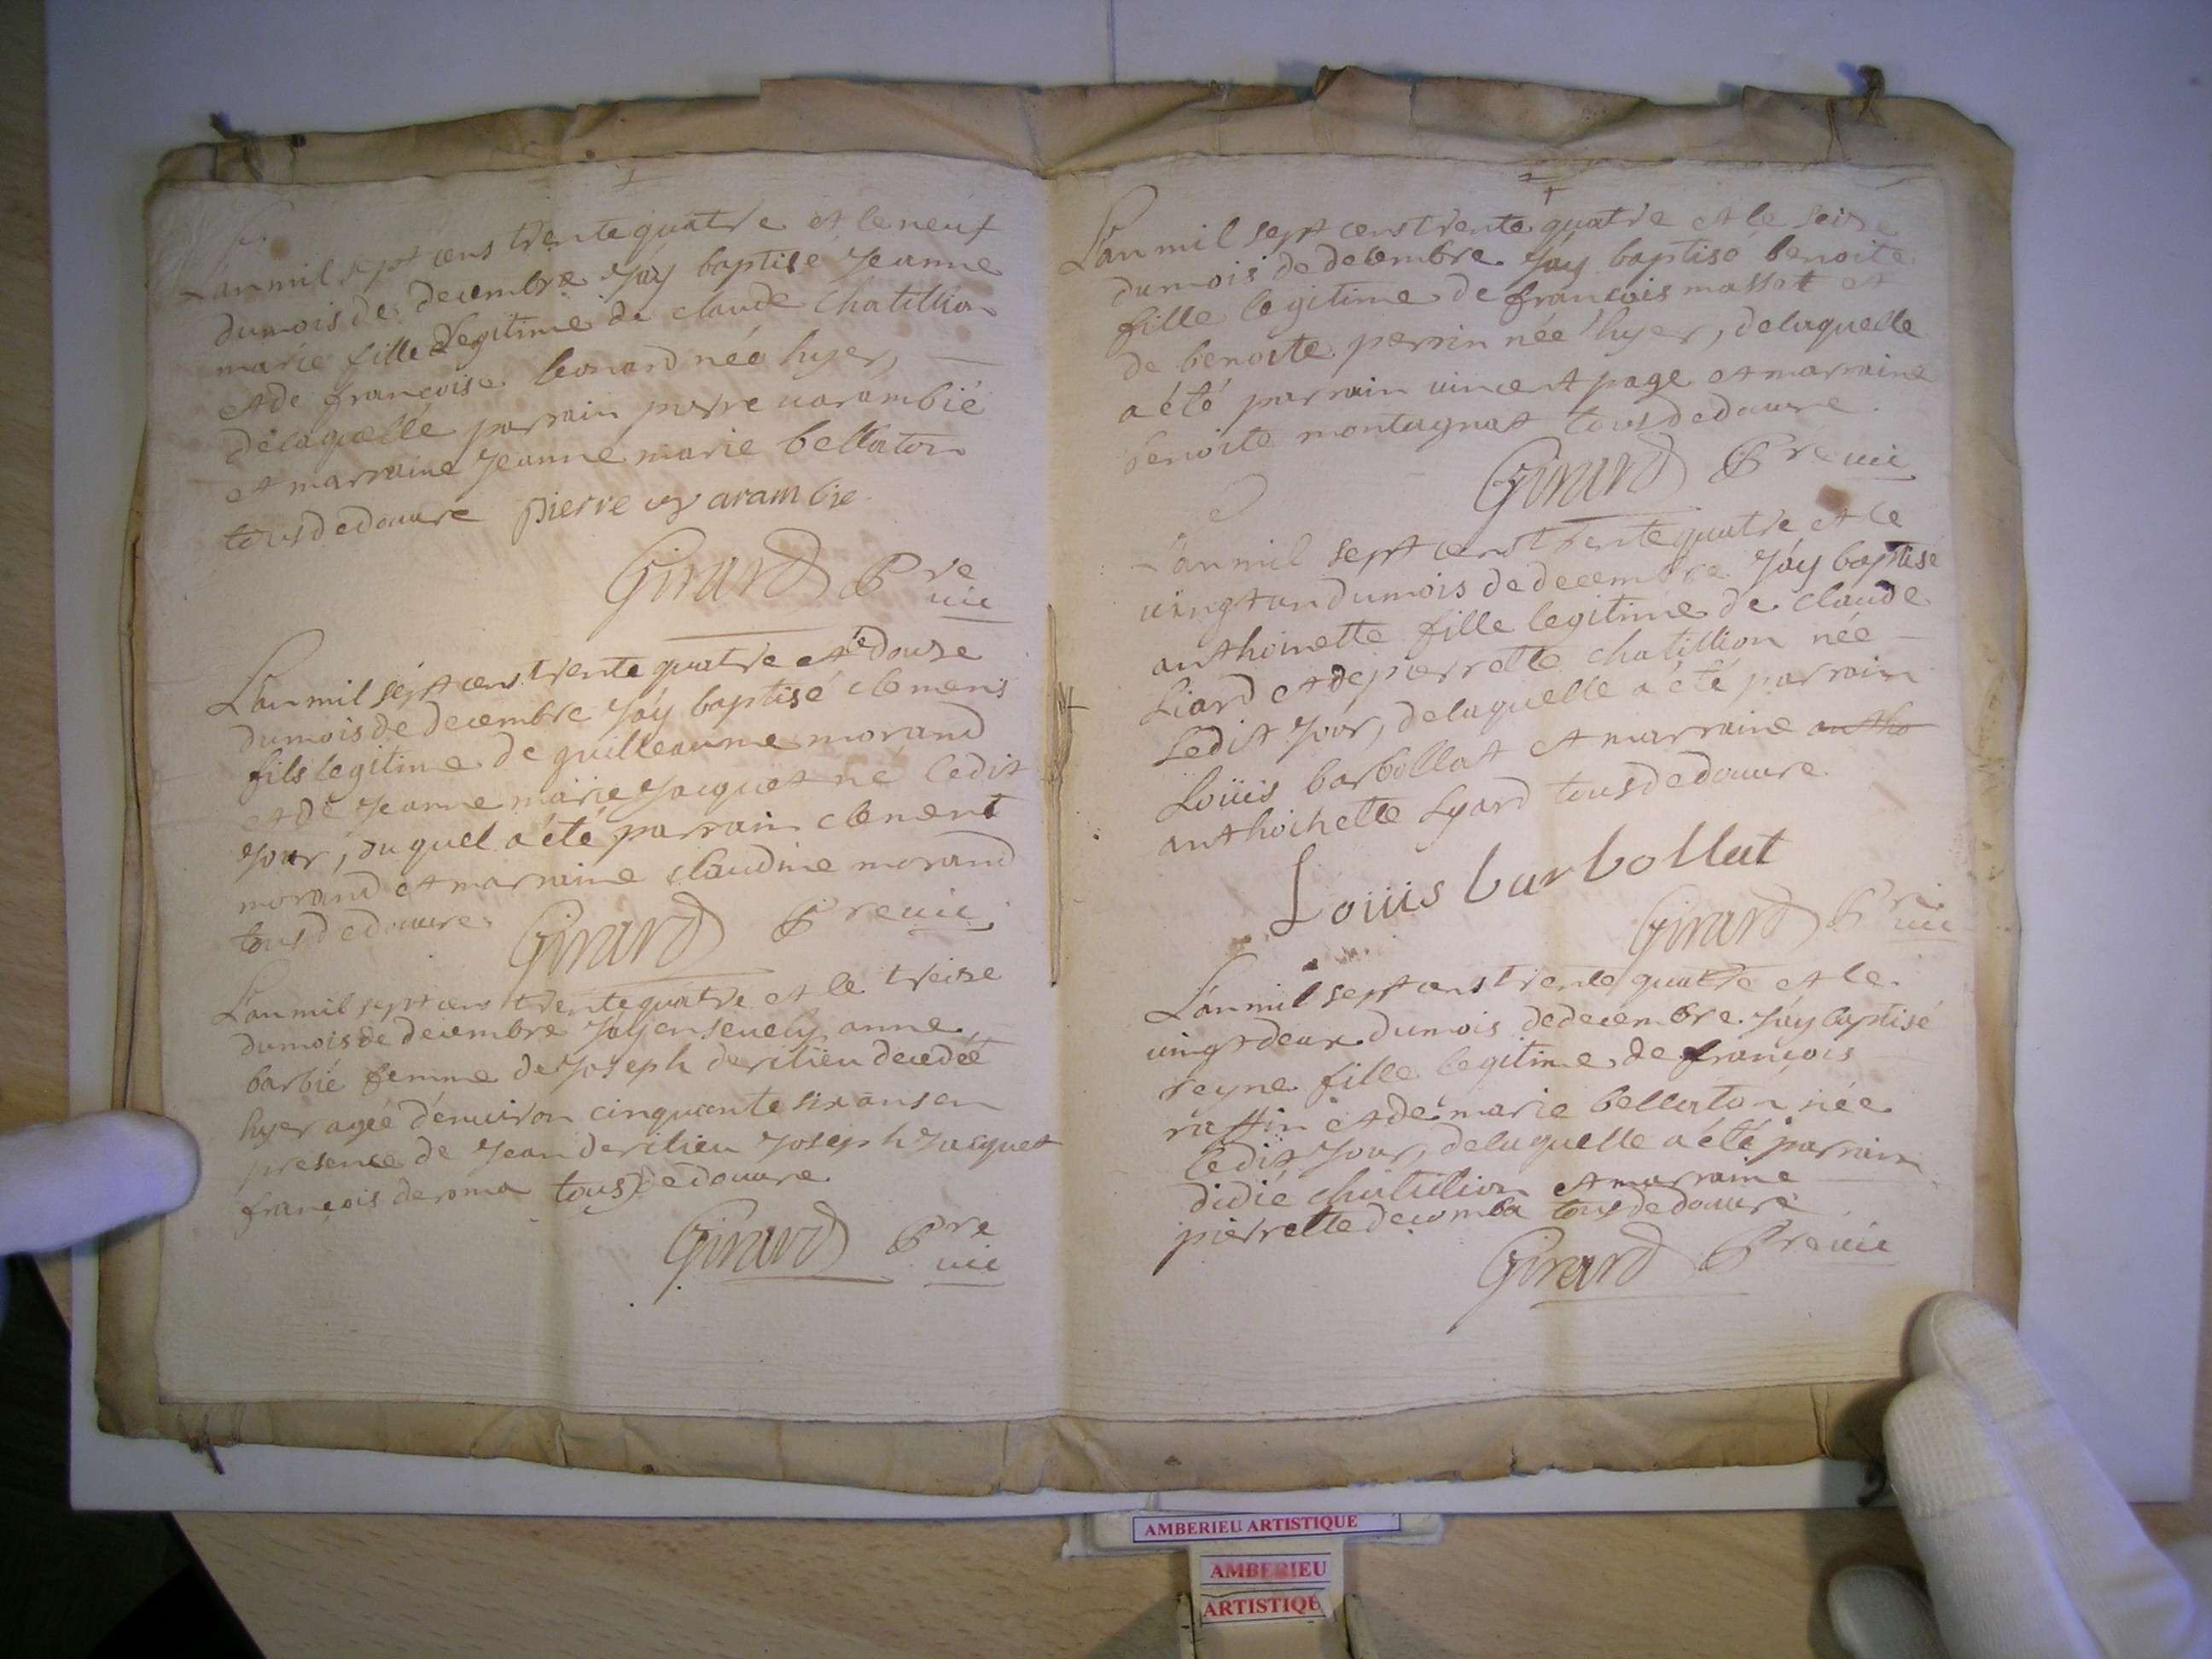 L'an mil sept cens trente quatre et le neuf
du mois de decembre J'ay baptisé Jeanne
marie fille legitime de claude Chatillion
et de françoise leonard née hyer,
de laquelle parrain pierre varambié
et marraine Jeanne marie bellaton
tous de douvre pierre varambie
Girard Pre
vic
L'an mil sept cens trente quatre et le douse
du mois de decembre J'ay baptisé clemens
fils legitime de guilleaume morand
et de Jeanne marie Jacquet né ledit
Jour, du quel a été parrain clement
morand et marraine claudine morand
tous de douvre Girard Pre vic
L'an mil sept cens trente quatre et le treise
du mois de decembre J'ay ensevely anne
barbié femme de Joseph derilieu decedée
hyer agée d'environ cinquante six ans en
presence de Jean derilieu Joseph Jacquet
françois deroma tous de douvre
Girard Pre
vic
L'an mil sept cens trente quatre et le seise
du mois de decembre J'ay baptisé benoite
fille legitime de françois massot et
de benoite perrin née hyer, de laquelle
a été parrain vincent page et marraine
benoite montagnat tous de douvre.
Girard Pre vic
L'an mil sept cens trente quatre et le
vingt un du mois de decembre J'ay baptisé
anthoinette fille legitime de claude
Liard et de pierrette chatillion née
Ledit Jour, de laquelle a été parrain
Loüis barbollat et marraine antho
anthoinette Lyard tous de douvre
Loüis barbollat
Girard Pre
vic
L'an mil sept cens trente quatre et le
vingt deux du mois de decembre J'ay baptisé
reyne fille legitime de françois
raffin et de marie bellaton née
ledit Jour, de laquelle a été parrain
didié chatillion et marraine
pierrette decomba tous de douvre
Girard Pre vic
AMBERIEU ARTISTIQUE
AMBERIEU
ARTISTIQUE